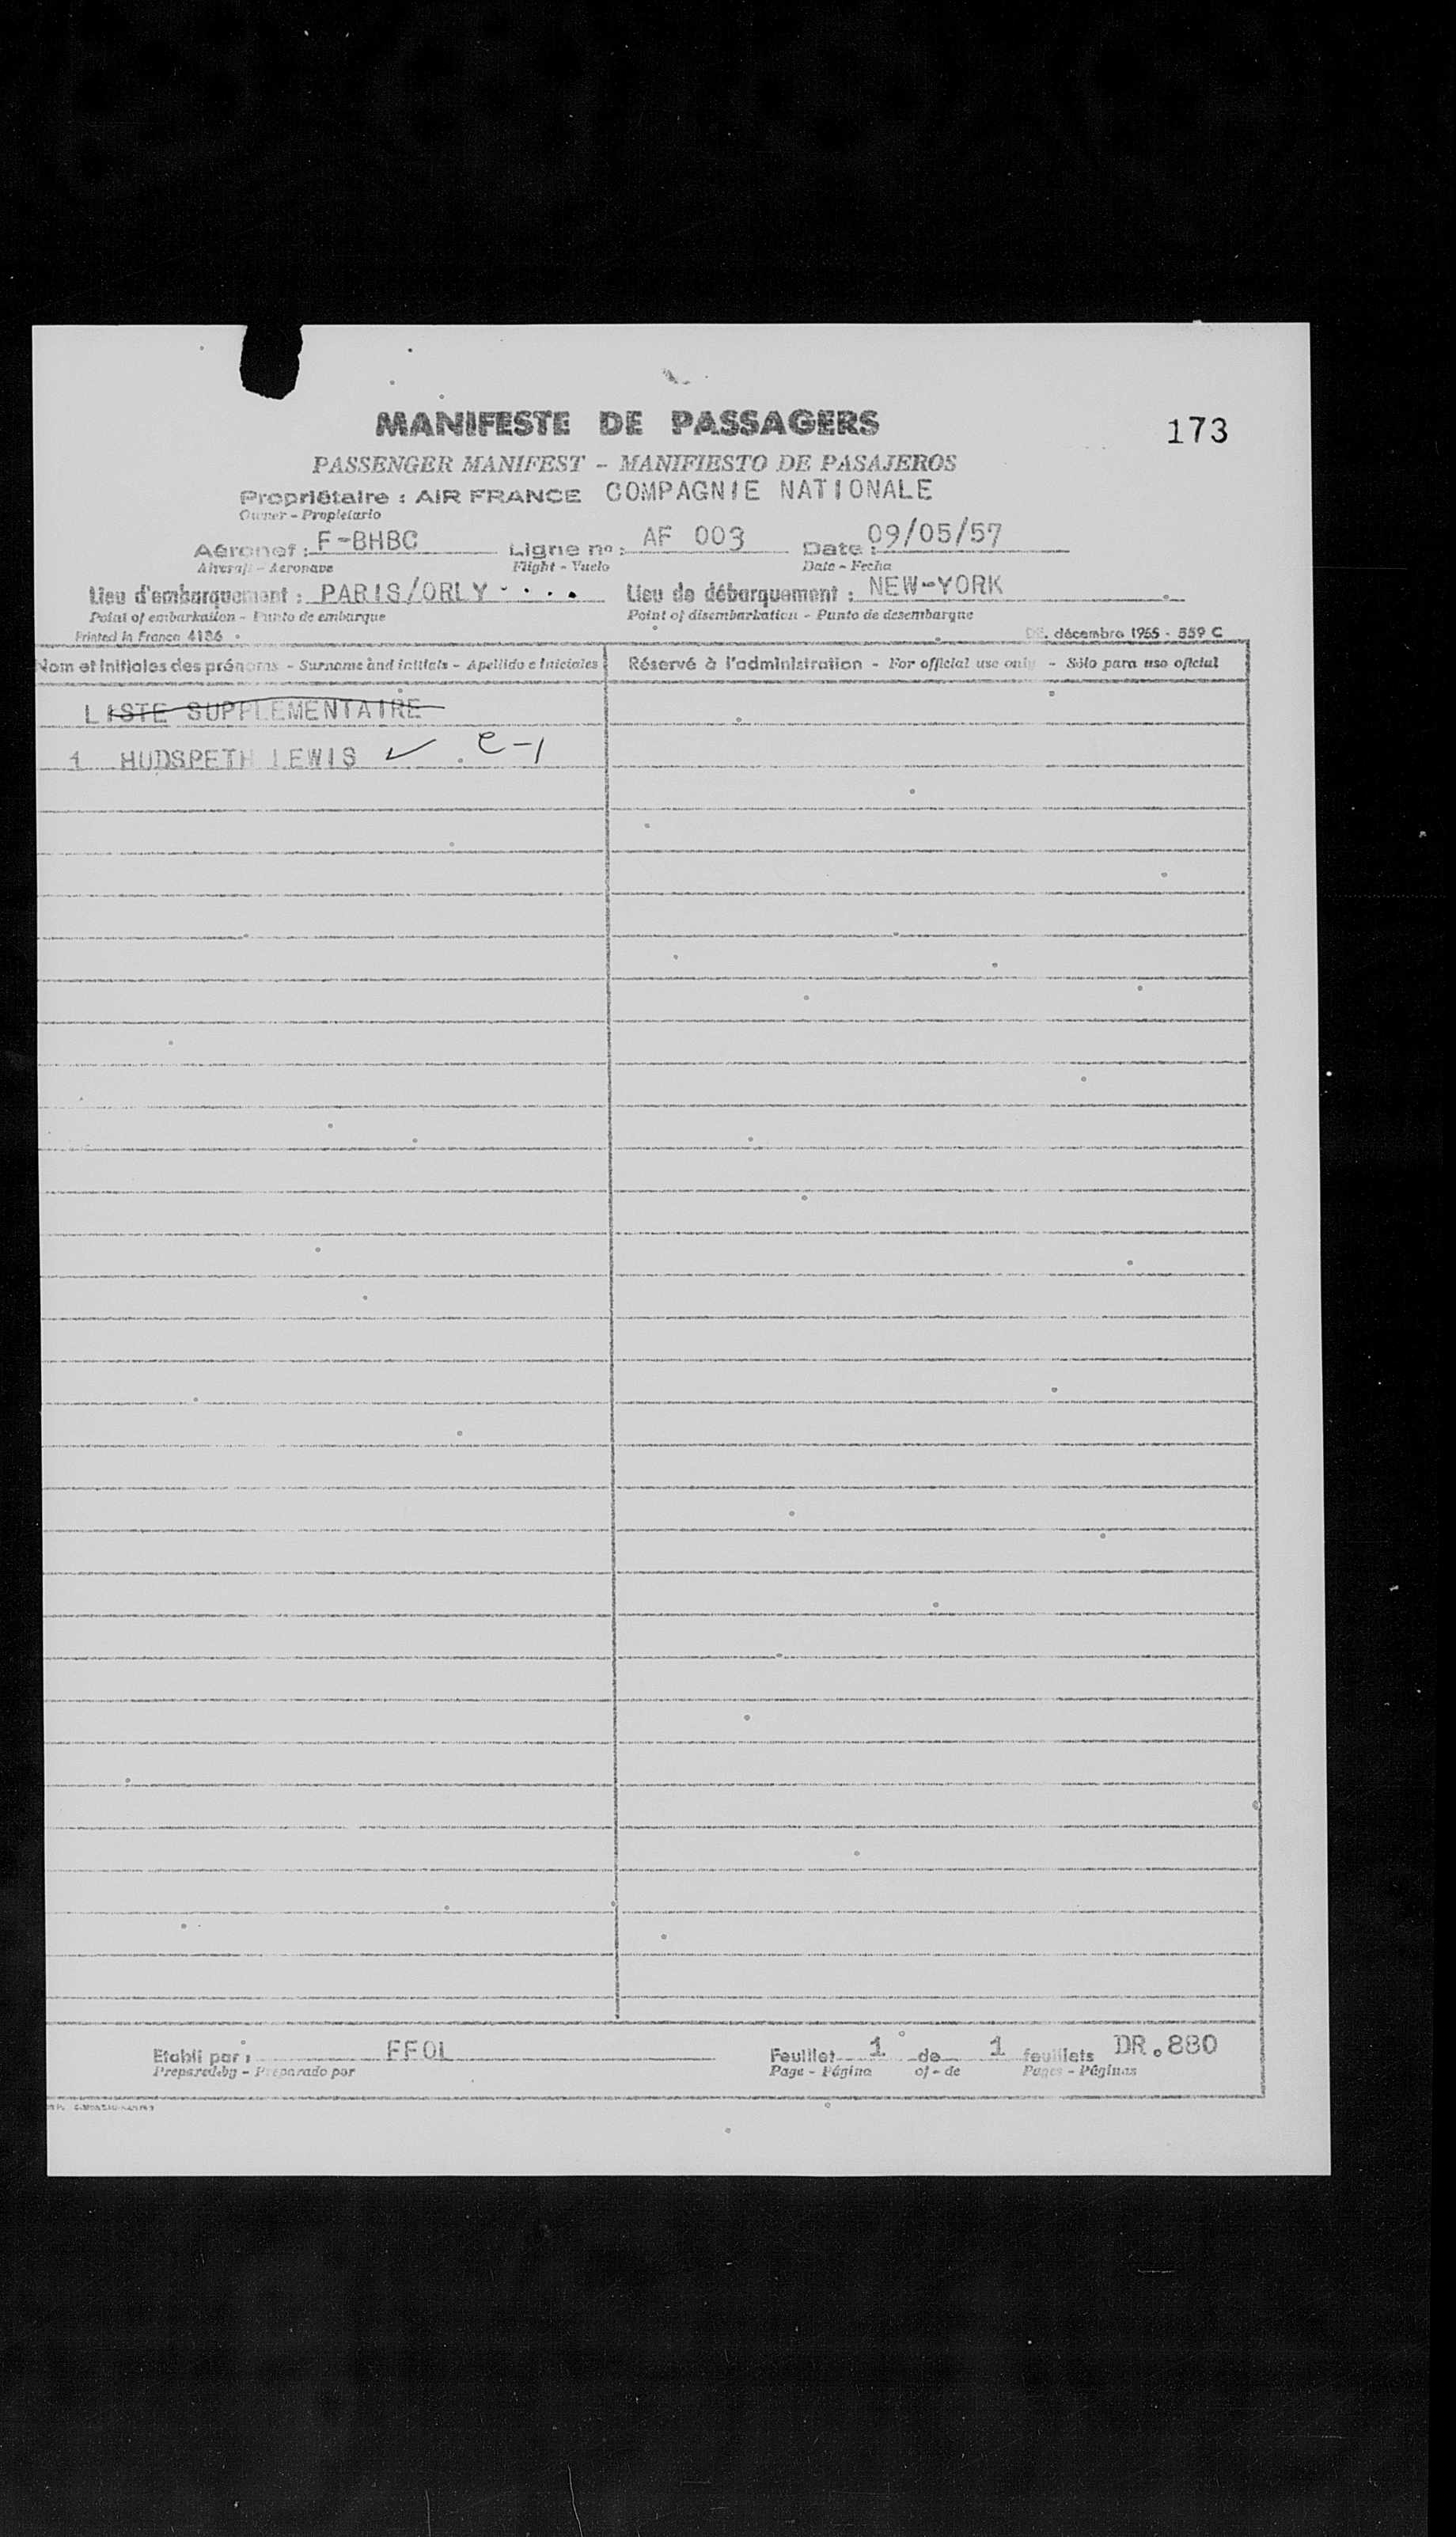 MANIFESTE DE PASSAGERS
173
PASSENGER MANIFEST - MANIFIESTO DE PASAJEROS
Propriétaire : AIR FRANCE COMPAGNIE NATIONALE
Owner - Propietario
Aéronef : F-BHBC Ligne no : AF 003 Date : 09/05/57
Aircraft - Aeronave Flight - Vuelo Date - Fecha
Lieu d'embarquement : PARIS/ORLY . . . . Lieu de débarquement : NEW-YORK
Point of embarkation - Punto de embarque Point of disembarkation - Punto de desembarque
Printed in France 4186 décembre 1955 - 559 C
Nom et initiales des prénoms - Surname and initials - Apellido e iniciales Réservé à l'administration - For official use only - Sólo para uso oficial
LISTE SUPPLEMENTAIRE
1 HUDSPETH LEWIS ✓ . C-1
Etabli par : FFOL Feuillet 1 de 1 feuillets DR.880
Prepared by - Preparado por Page - Página of - de Pages - Páginas